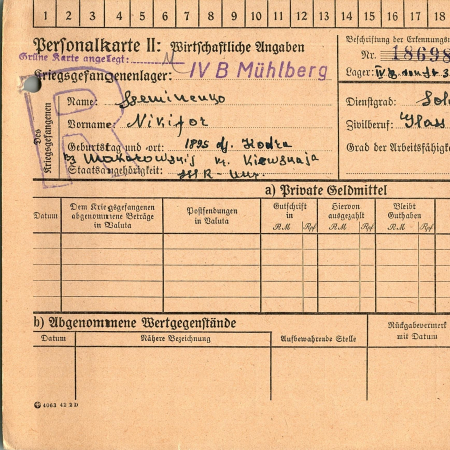 1 2 3 4 5 6 7 8 9 10 11 12 13 14 15 16 17 18
Personalkarte II: Wirtschaftliche Angaben
Beschriftung der Erkennungs
Grüne Karte angelegt:
Nr. 18698
Kriegsgefangenenlager: IV B Mühlberg
Lager:
R
Des Kriegsgefangenen
Name: Sseminenko
Dienstgrad: Sol
Vorname: Nikifor
Zivilberuf: Glas
Geburtstag und -ort: 1895
Grad der Arbeitsfähigk
Makarowskij Kiewskaja
Staatsangehörigkeit:
a) Private Geldmittel
Datum
Dem Kriegsgefangenen abgenommene Beträge in Valuta
Postsendungen in Valuta
Gutschrift in
RM Rpf
Hiervon ausgezahlt
RM Rpf
Bleibt Guthaben
RM Rpf
b) Abgenommene Wertgegenstände
Datum
Nähere Bezeichnung
Aufbewahrende Stelle
Rückgabevermerk mit Datum
4063 42 2D